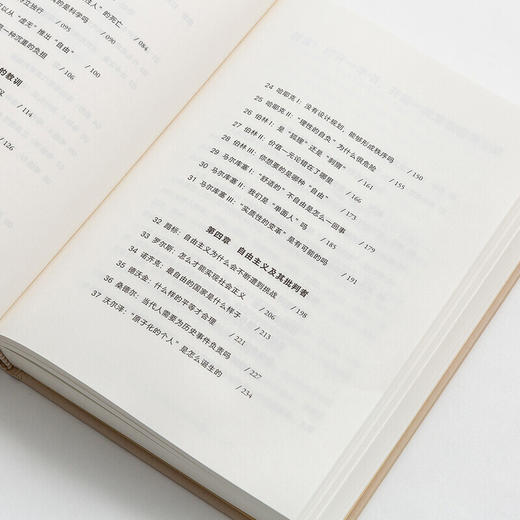 的死亡
/084
的是科学吗
/090
立独行 /095
可以从“虚无”推出“自由”
/100
一种沉重的负担
/106
的教训
义
/114
/126
24 哈耶克 I：没有设计规划，能够形成秩序吗 /150
25 哈耶克 II：“理性的自负”为什么很危险 /155
26 伯林 I：是“狐狸”还是“刺猬” /161
27 伯林 II：价值一元论错在了哪里 /166
28 伯林 III：你想要的是哪种“自由” /173
29 马尔库塞 I：“舒适的”不自由是怎么一回事 /179
30 马尔库塞 II：我们是“单面人”吗 /185
31 马尔库塞 III：“实质性的变革”是有可能的吗 /191
第四章 自由主义及其批判者
32 路标：自由主义为什么会不断遭到挑战 /198
33 罗尔斯：怎么才能实现社会正义 /206
34 诺齐克：最自由的国家是什么样子 /213
35 德沃金：什么样的平等才合理 /221
36 桑德尔：当代人需要为历史事件负责吗 /227
37 沃尔泽：“原子化的个人”是怎么诞生的 /234